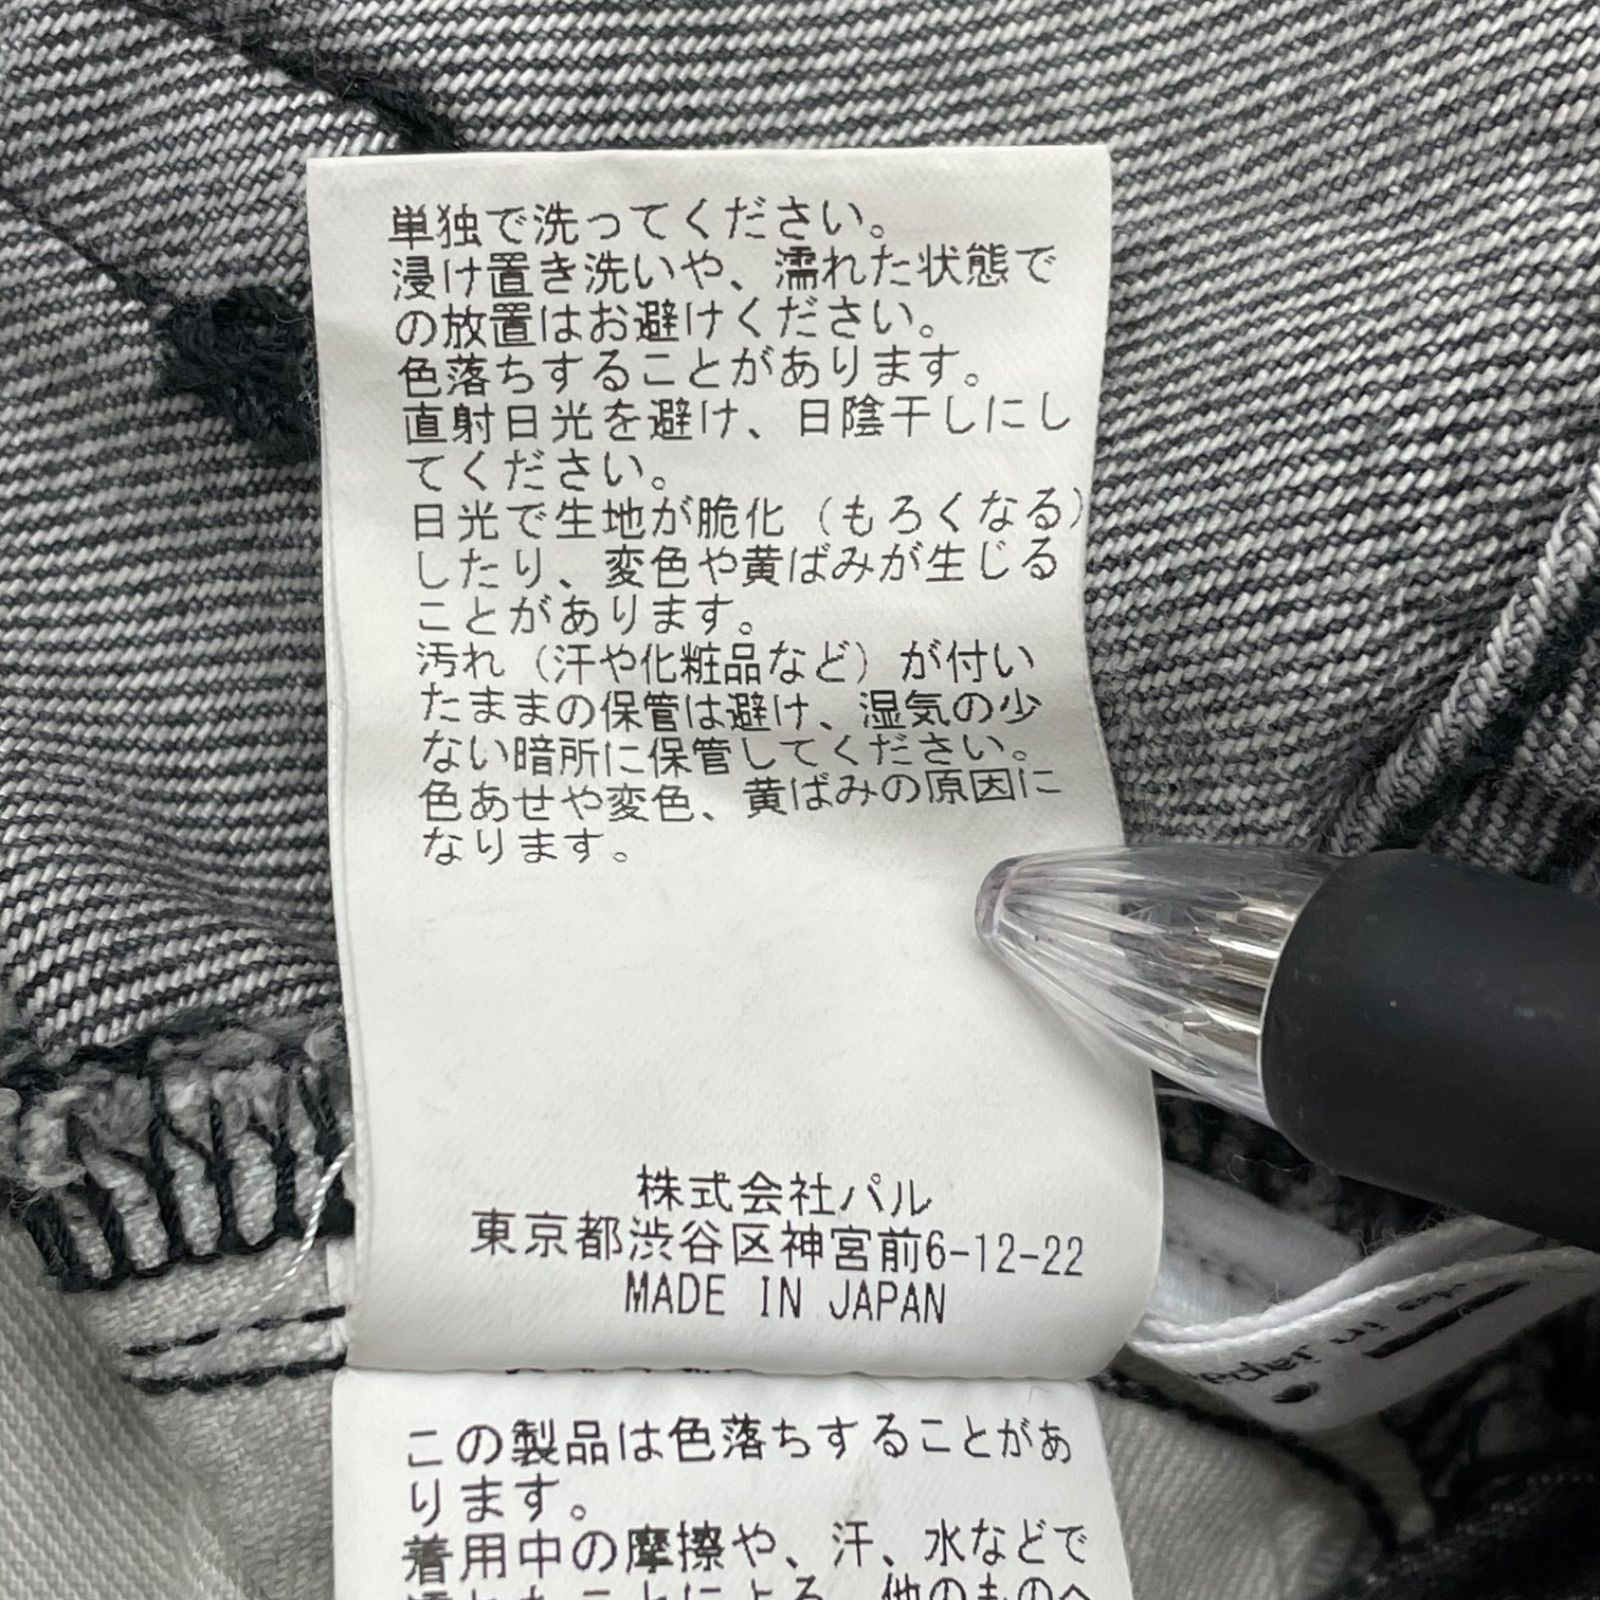 単独で洗ってください。
浸け置き洗いや、濡れた状態で
の放置はお避けください。
色落ちすることがあります。
直射日光を避け、日陰干しにし
てください。
日光で生地が脆化（もろくなる）
したり、変色や黄ばみが生じる
ことがあります。
汚れ（汗や化粧品など）が付い
たままの保管は避け、湿気の少
ない暗所に保管してください。
色あせや変色、黄ばみの原因に
なります。
株式会社パル
東京都渋谷区神宮前6-12-22
MADE IN JAPAN
この製品は色落ちすることがあ
ります。
着用中の摩擦や、汗、水などで
濡れることによる、他のものへ
in japa